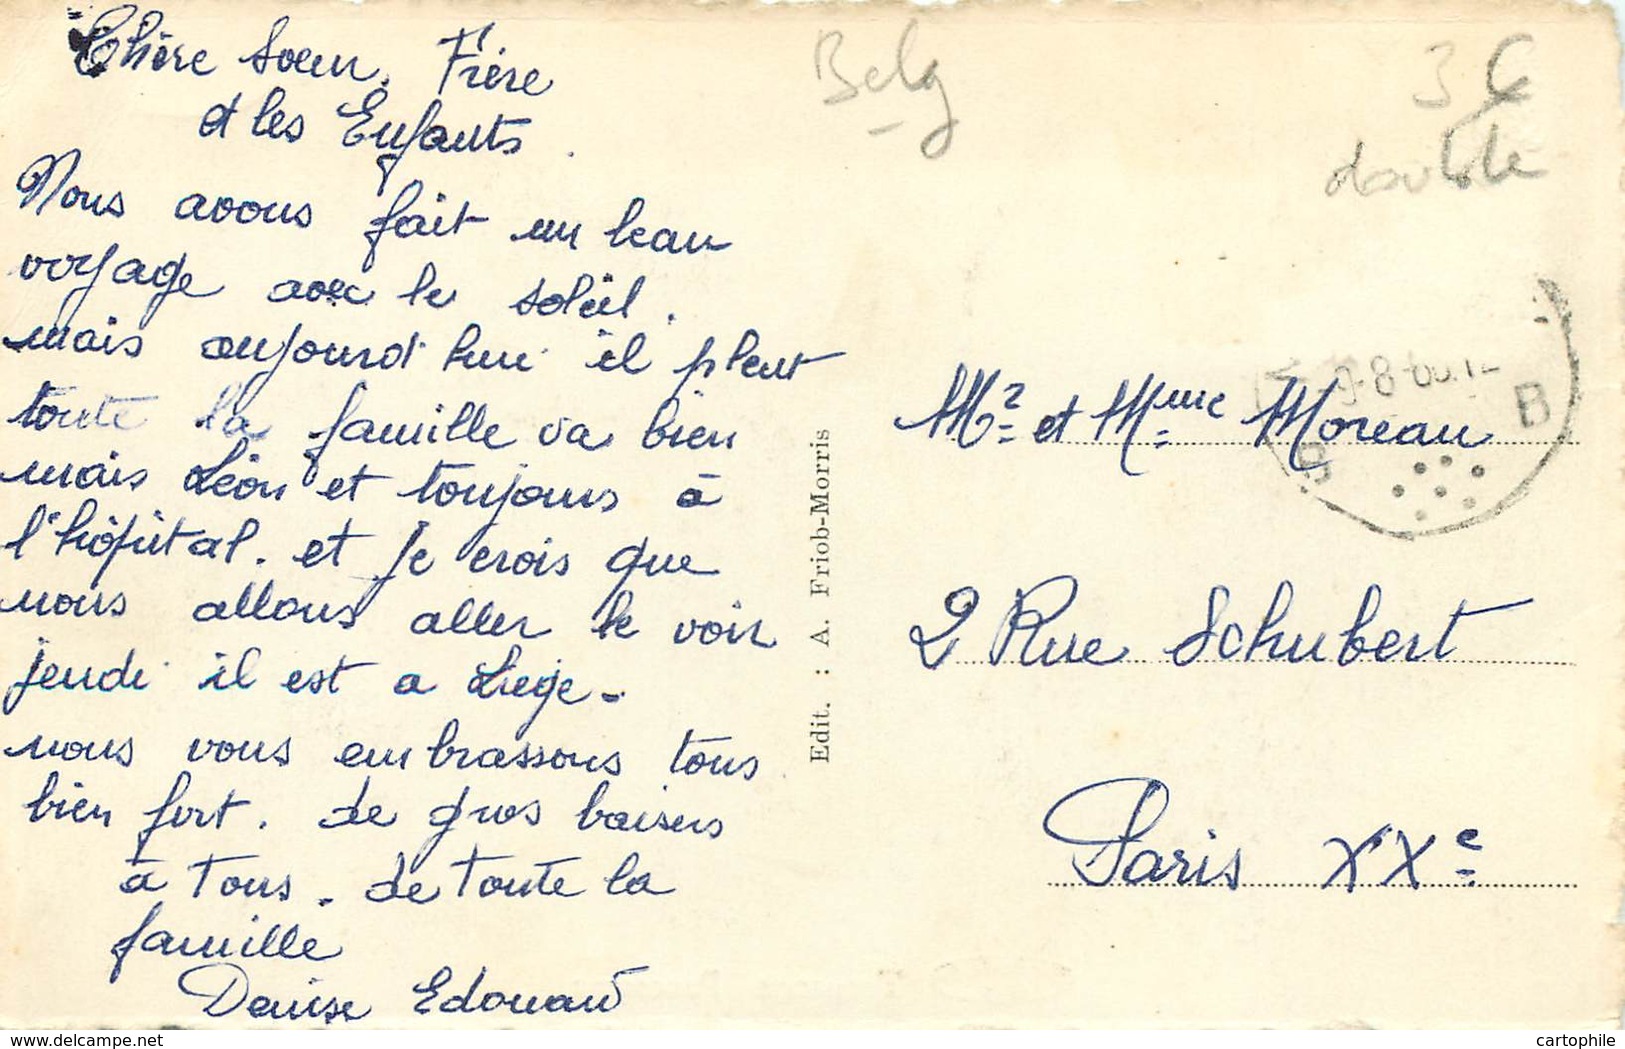 Chère Soeur, Frère
et les Enfants.
Nous avons fait un beau
voyage avec le soleil.
mais aujourd'hui il pleut
toute la famille va bien
mais Léon et toujours à
l'hôpital. et je crois que
nous allons aller le voir
jeudi il est a Liege -
nous vous embrassons tous
bien fort. de gros baisers
à Tous. de toute la
famille
Denise Edouard
Edit. : A. Friob-Morris
Belg
3 €
double
9-8-60.12
B
B
Mr et Mme Moreau
2 Rue Schubert
Paris XXe
delcampe.net
cartophile